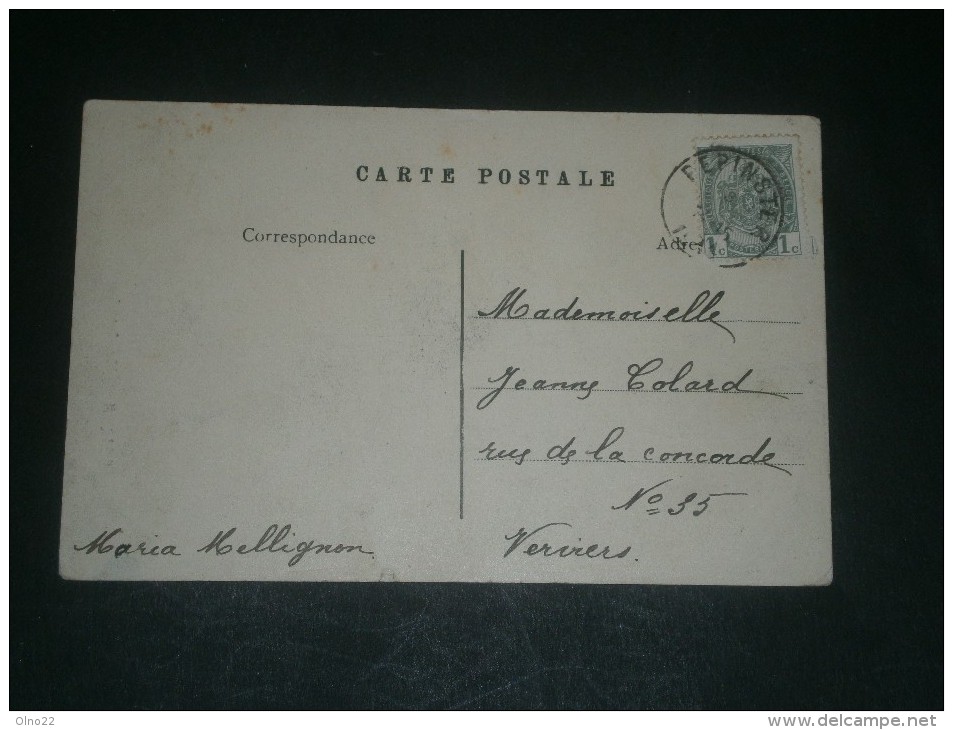 CARTE POSTALE
PEPINSTER
Correspondance
Adre
1c 1c
Mademoiselle
Jeanne Colard
rue de la concorde
No 35
Verviers.
Maria Mellignon.
Olno22
www.delcampe.net